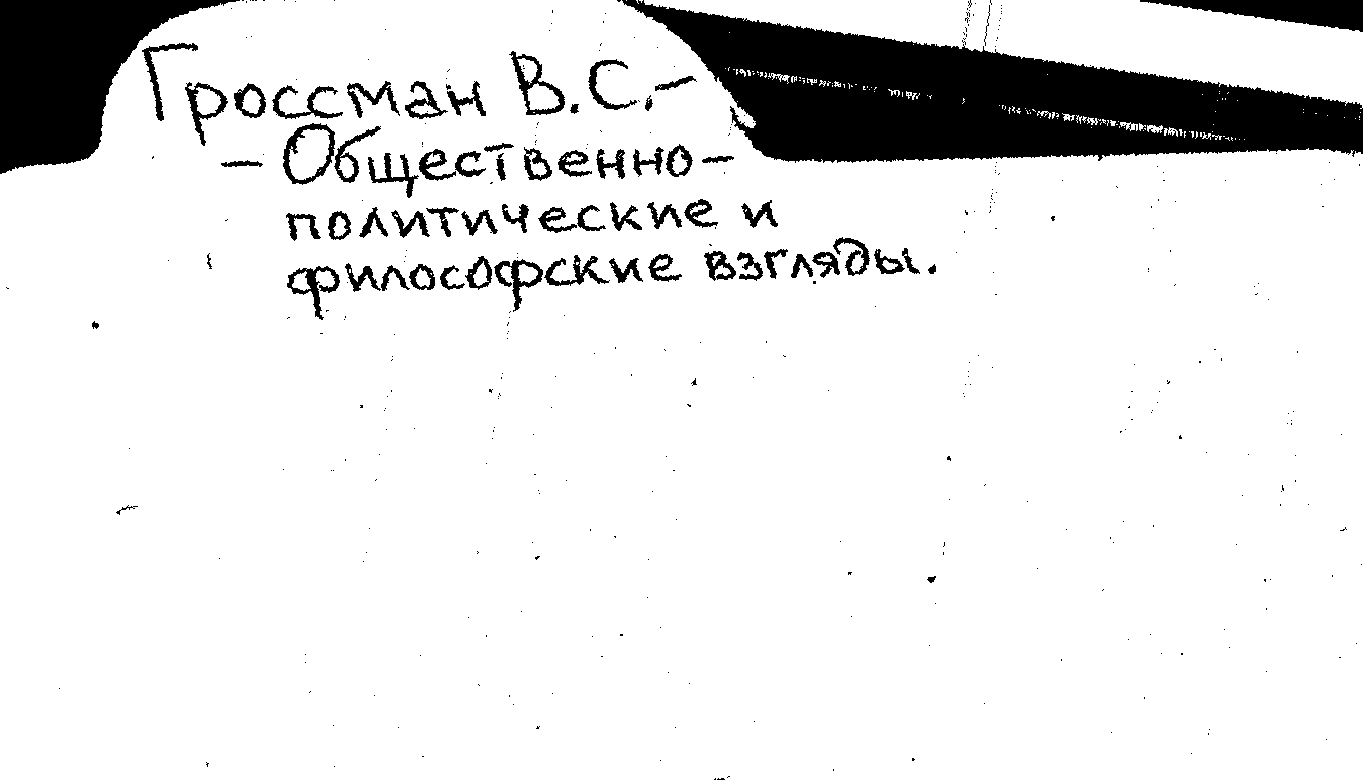 Гроссман В.С. –
– Общественно–
политические и
философские взгляды.